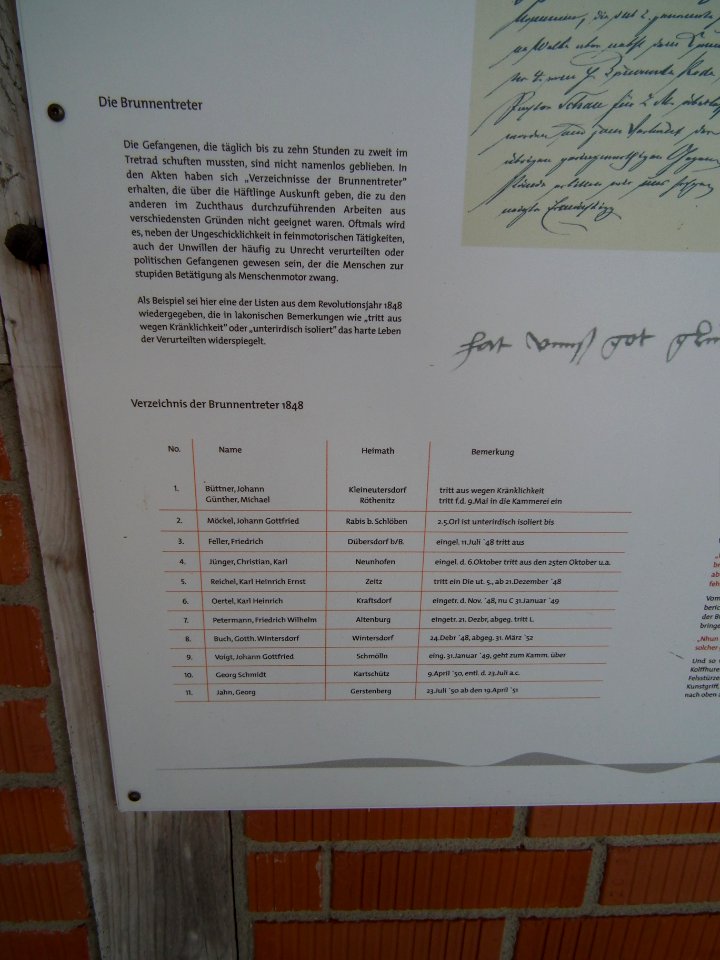 Die Brunnentreter
Die Gefangenen, die täglich bis zu zehn Stunden zu zweit im
Tretrad schuften mussten, sind nicht namenlos geblieben. In
den Akten haben sich „Verzeichnisse der Brunnentreter"
erhalten, die über die Häftlinge Auskunft geben, die zu den
anderen im Zuchthaus durchzuführenden Arbeiten aus
verschiedensten Gründen nicht geeignet waren. Oftmals wird
es, neben der Ungeschicklichkeit in feinmotorischen Tätigkeiten,
auch der Unwillen der häufig zu Unrecht verurteilten oder
politischen Gefangenen gewesen sein, der die Menschen zur
stupiden Betätigung als Menschenmotor zwang.
Als Beispiel sei hier eine der Listen aus dem Revolutionsjahr 1848
wiedergegeben, die in lakonischen Bemerkungen wie „tritt aus
wegen Kränklichkeit" oder „unterirdisch isoliert" das harte Leben
der Verurteilten widerspiegelt.
Verzeichnis der Brunnentreter 1848
No. Name Heimath Bemerkung
1. Büttner, Johann Kleineutersdorf tritt aus wegen Kränklichkeit
Günther, Michael Röthenitz tritt f.d. 9.Mai in die Kammerei ein
2. Möckel, Johann Gottfried Rabis b. Schlöben 2.5.Orl ist unterirdisch isoliert bis
3. Feller, Friedrich Dübersdorf b/B. eingel. 11.Juli ´48 tritt aus
4. Jünger, Christian, Karl Neunhofen eingel. d. 6.Oktober tritt aus den 25ten Oktober u.a.
5. Reichel, Karl Heinrich Ernst Zeitz tritt ein Die ut. 5., ab 21.Dezember ´48
6. Oertel, Karl Heinrich Kraftsdorf eingetr. d. Nov. ´48, nu C 31.Januar ´49
7. Petermann, Friedrich Wilhelm Altenburg eingetr. 21. Dezbr, abgeg. tritt L.
8. Buch, Gotth. Wintersdorf Wintersdorf 24.Debr ´48, abgeg. 31. März ´52
9. Voigt, Johann Gottfried Schmölln eing. 31.Januar ´49, geht zum Kamm. über
10. Georg Schmidt Kartschütz 9.April ´50, entl. d. 23.Juli a.c.
11. Jahn, Georg Gerstenberg 23.Juli ´50 ab den 19.April ´51
Vom
beric
der B
bringe
„Nhun
solcher
Und so
Kolffhure
Felsstürze
Kunstgriff,
nach oben